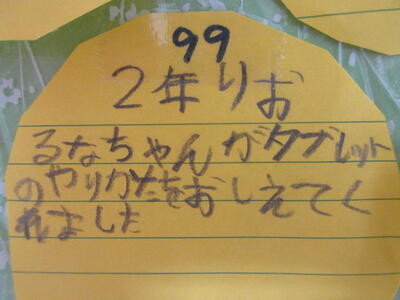 99
2年りお
るなちゃんがタブレット
のやりかたをおしえてく
れました